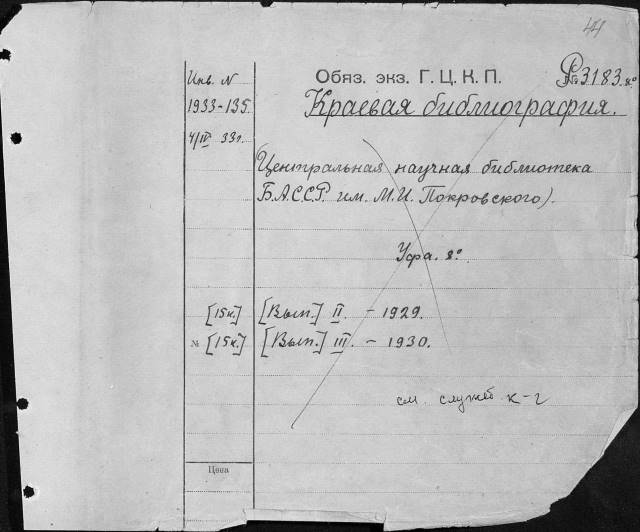 44
Инв. N
Обяз. экз. Г. Ц. К. П.
№3183.8°
1933-135
Краевая библиография.
4/IV 33г.
Центральная научная библиотека
Б.А.С.С.Р. им. М.И. Покровского).
Уфа. 8°
[15к.] [Вып.] II. - 1929.
№ [15к.] [Вып.] III. - 1930.
см. служеб к-г
Цена